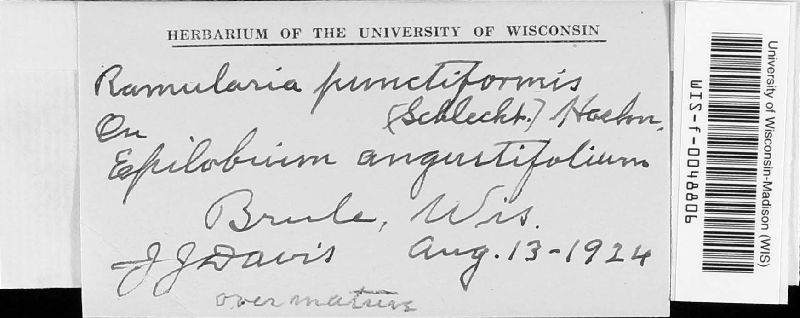 HERBARIUM OF THE UNIVERSITY OF WISCONSIN
Ramularia punctiformis
(Schlecht.) Hoehn.
On
Epilobium angustifolium
Brule, Wis.
J J Davis Aug. 13-1924
over mature
University of Wisconsin-Madison (WIS)
WIS-f-0048806